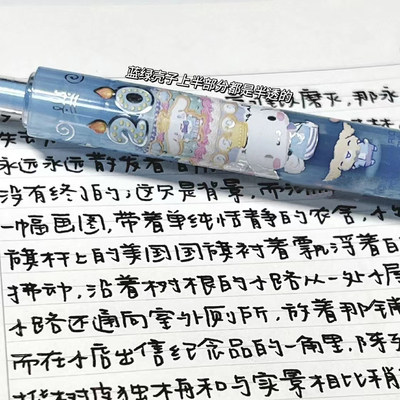 蓝绿壳子上半部分都是半透的
磨灭，那永
20
永远永远散发着
没有终了的；这只是背景，而
一幅画图，带着单纯恬静的农舍，小
旗杆上的美国国旗衬着飘浮着白
拂动，沿着树根的小路从一处小屋
小路还通向室外厕所，放着那铺
而在小店出售纪念品的一角里，陈
树皮独木舟和与实景相比稍